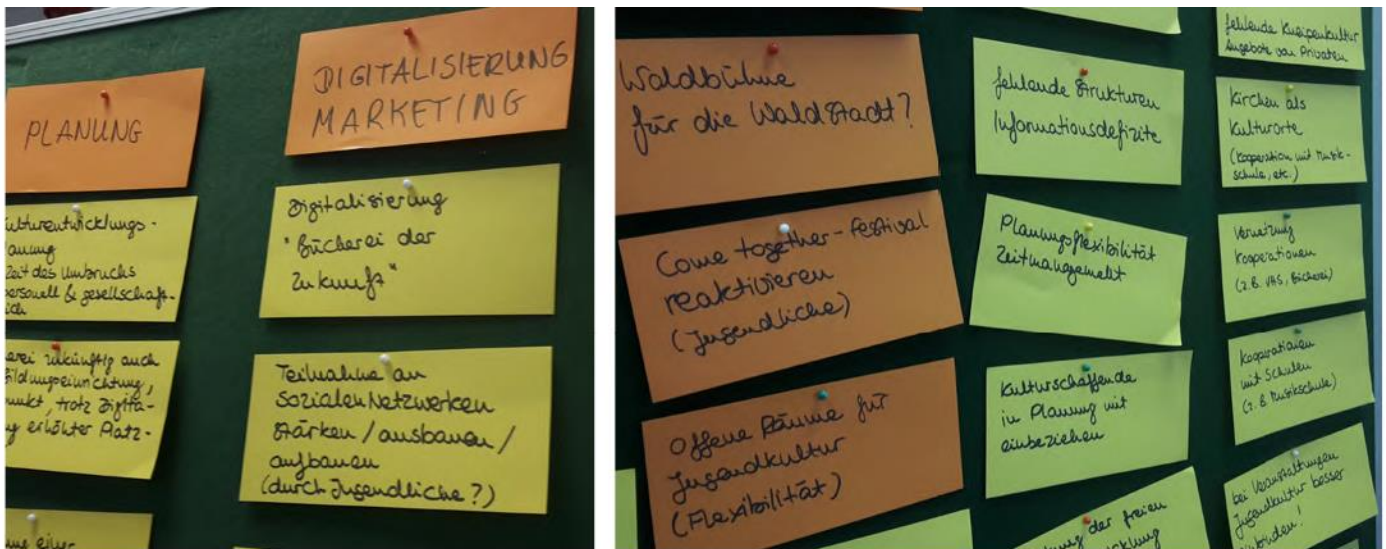 PLANUNG
Kulturentwicklungs-
planung
Zeit des Umbruchs
personell & gesellschaft-
lich
zukünftig auch
Bildungseinrichtung,
trotz Digita-
erhöhter Platz-
einer
DIGITALISIERUNG
MARKETING
Digitalisierung
"Bücherei der
Zukunft"
Teilnahme an
Sozialen Netzwerken
stärken / ausbauen /
aufbauen
(durch Jugendliche?)
Waldbühne
für die Waldstadt?
Come together-Festival
reaktivieren
(Jugendliche)
Offene Räume für
Jugendkultur
(Flexibilität)
fehlende Strukturen
Informationsdefizite
Planungsflexibilität
Zeitmangement
Kulturschaffende
in Planung mit
einbeziehen
der freien
fehlende Kneipenkultur
Angebote von Privaten
Kirchen als
Kulturorte
(Kooperation mit Musik-
schule, etc.)
Vernetzung
Kooperationen
(z.B. VHS, Bücherei)
Kooperationen
mit Schulen
(z.B Musikschule)
bei Veranstaltungen
Jugendkultur besser
einbinden!